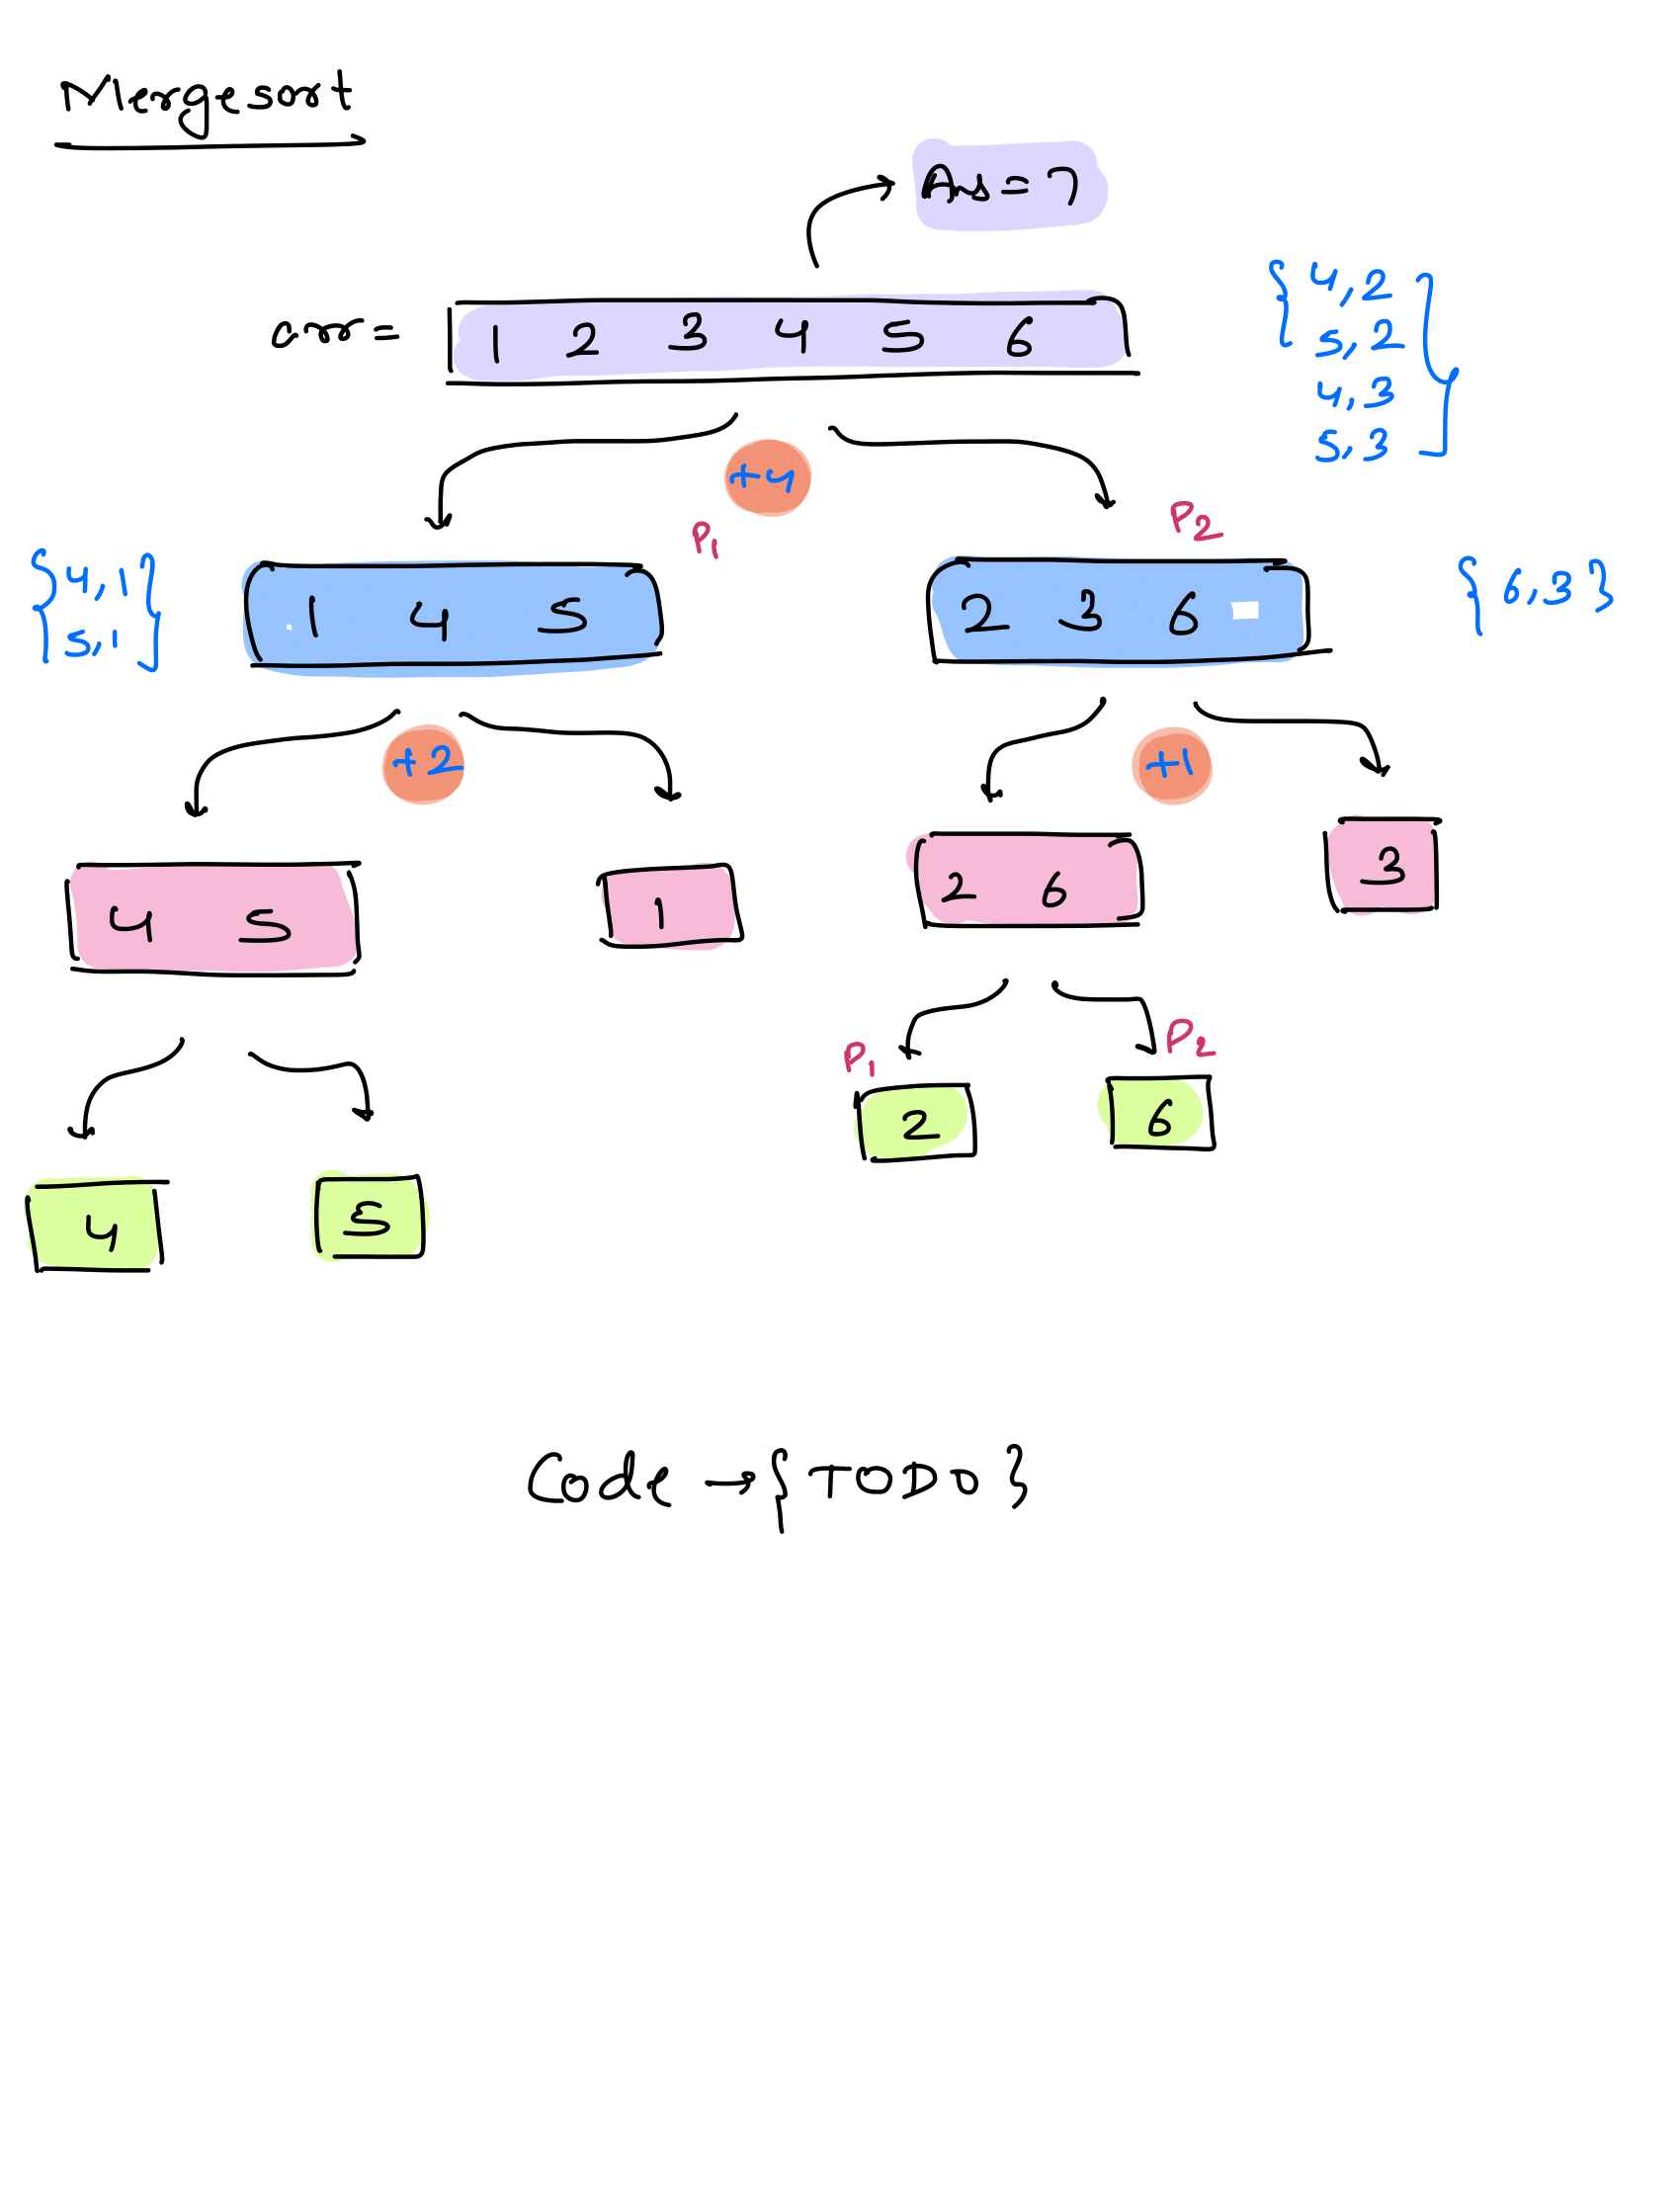 Mergesort
Ans = 7
arr = 1 2 3 4 5 6
{ 4,2
5,2
4,3
5,3 }
+4
P1
P2
{ 4,1
5,1 }
1 4 5
2 3 6
{ 6,3 }
+2
+1
4 5
1
2 6
3
P1
P2
2
6
4
5
Code → { TODO }